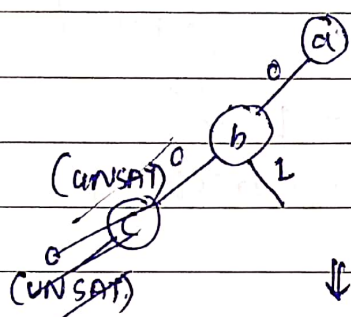 a
0
b
0
1
(UNSAT)
C
0
(UNSAT)
⇓